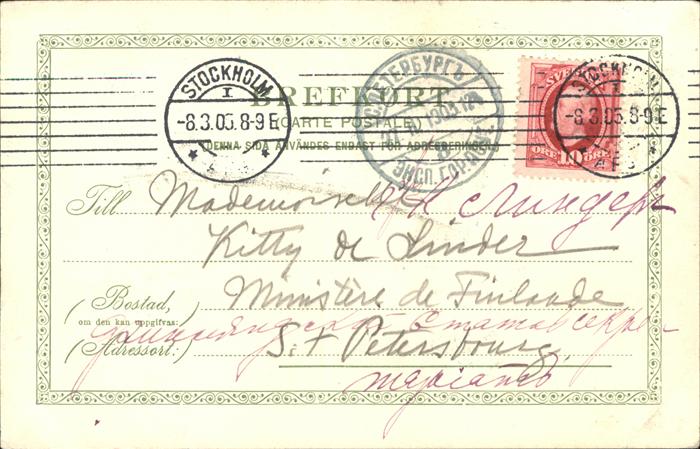 STOCKHOLM
I
-8.3.05.8-9 E
STOCKHOLM
-8.3.05.8-9 E
С.ПЕТЕРБУРГЪ
BREFKORT
(CARTE POSTALE)
(DENNA SIDA ANVÄNDES ENDAST FÖR ADRESSERINGEN)
10
ÖRE ÖRE
Till Mademoiselle
Линдеръ
Kitty de Linder
(Bostad, om den kan uppgifvas:)
Ministère de Finlande
(Adressort:) S:t Petersbourg